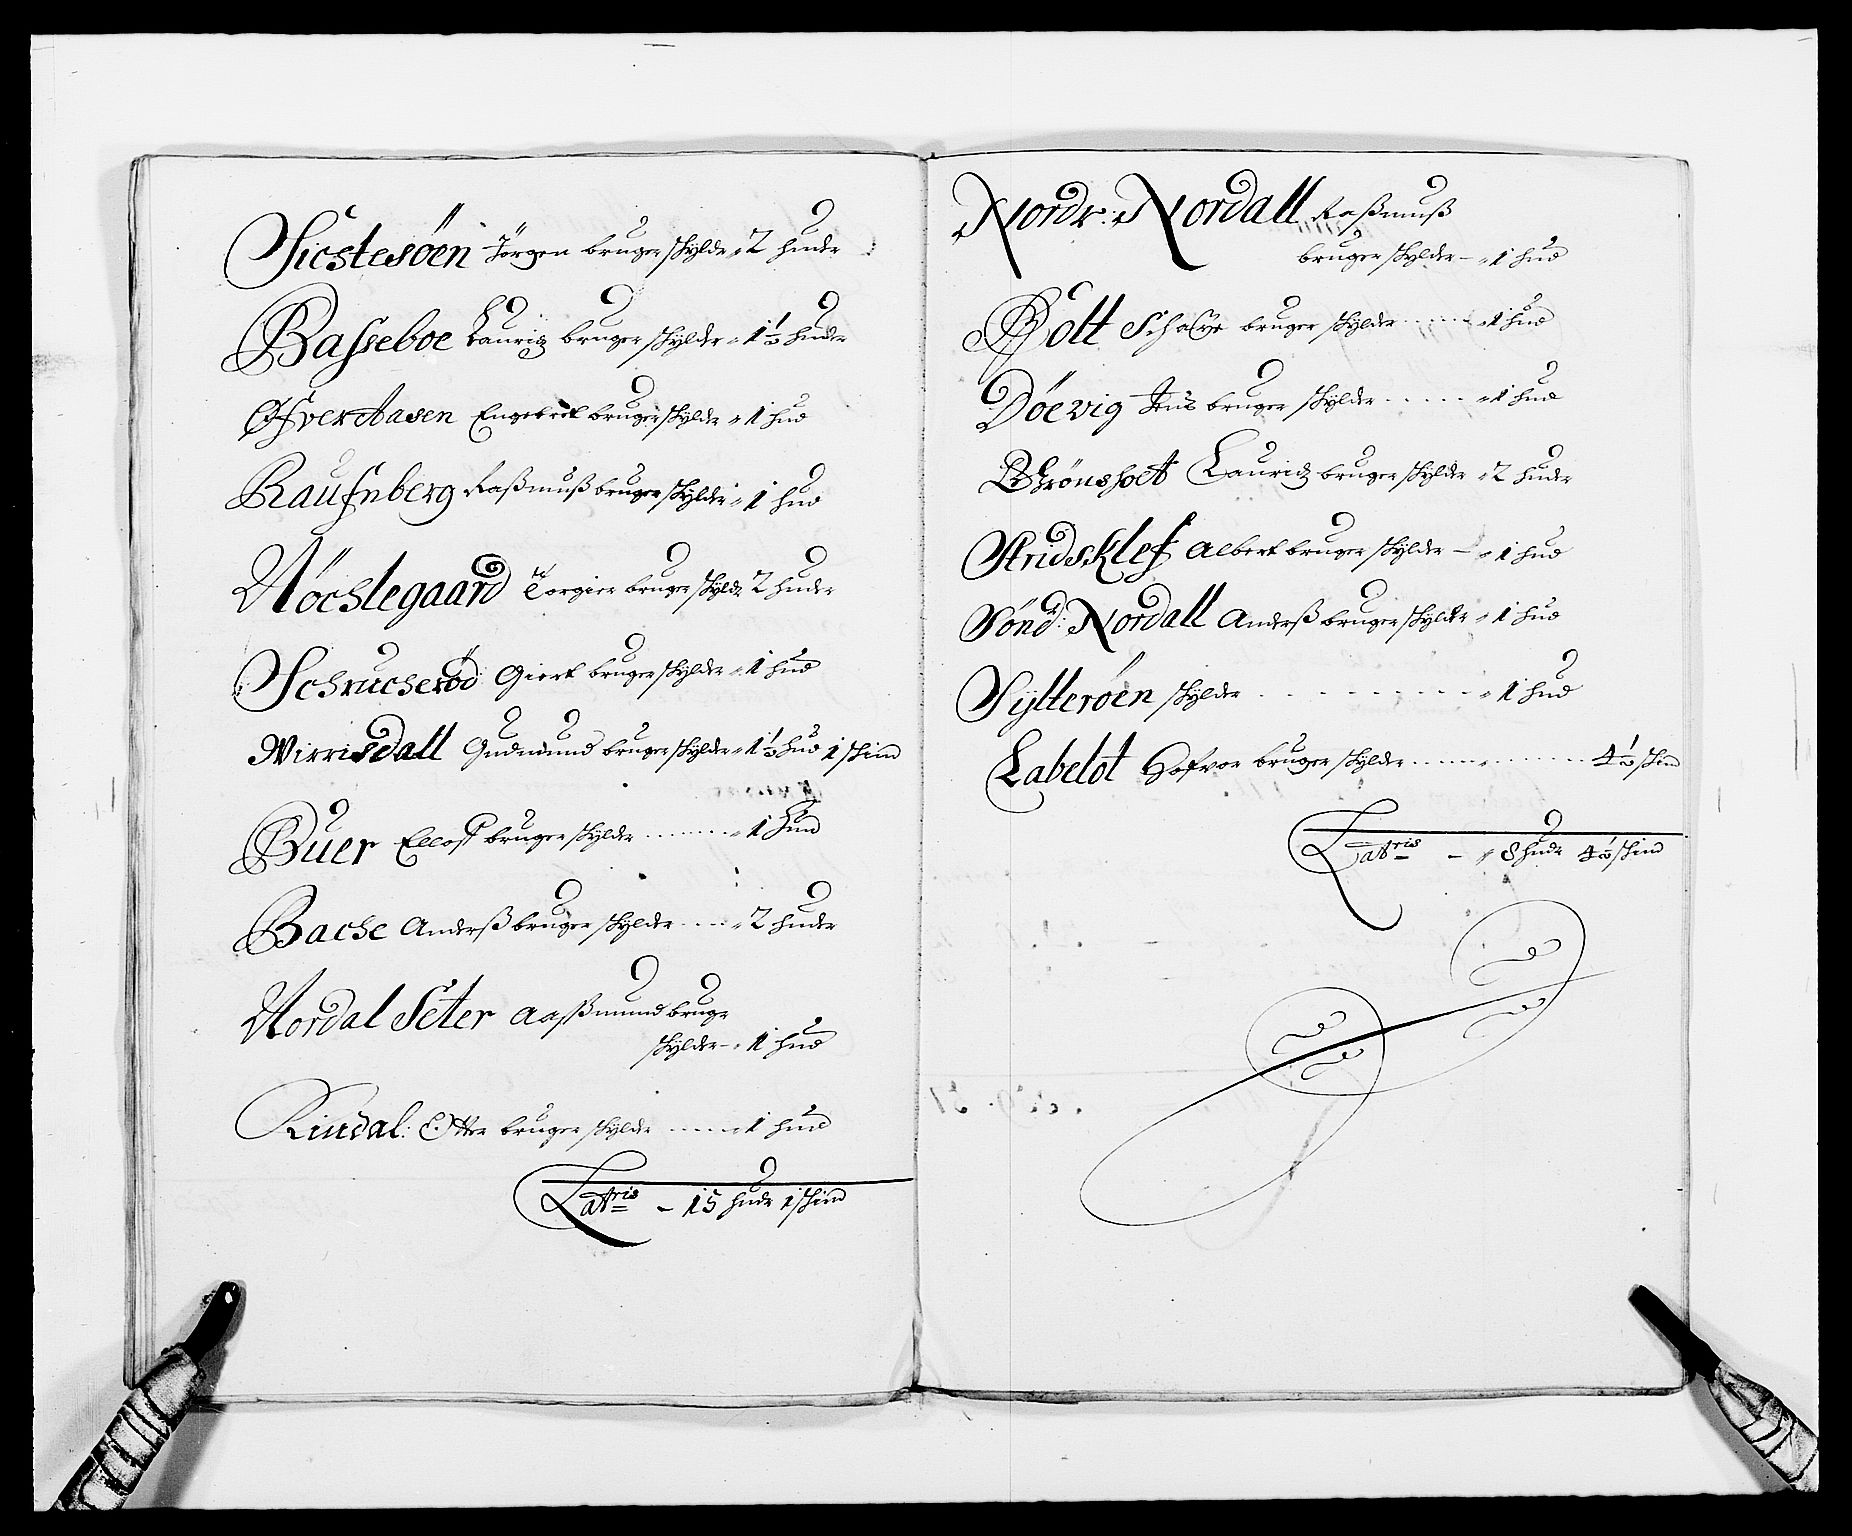 Sicstesöen Jörgen bruger skylder 2 huder
Basseboe Lauridz bruger skylder 1½ huder
Ofver Aasen Engebret bruger skylder 1 hud
Raufnberg Rasmuß bruger skylder 1 hud
Nöchlegaard Torgier bruger skyldr 2 huder
Schrucheröd Giert bruger skylder 1 hud
Wirrisdall Gudmund bruger skylder 1½ hud 1 skind
Buer Ellof bruger skylder 1 hud
Bache Anderß bruger skylder 2 huder
Nordal Seter Aaßmund bruger
skylder 1 hud
Rindal: Otter bruger skylder 1 hud
Latris - 15 hudr 1 skind
Nordr: Nordall Raßmuß
bruger skylder - 1 hud
Bott bruger skylder 1 hud
Döevig Jens bruger skylder 1 hud
Brönsholt Lauridz bruger skylder 2 huder
Stridsklef Albert bruger skylder - 1 hud
Sönd: Nordall Anderß bruger skylder 1 hud
Sylteröen skylder 1 hud
Labelot bruger skylder 4½ skind
Latris - 8 hudr 4½ skind